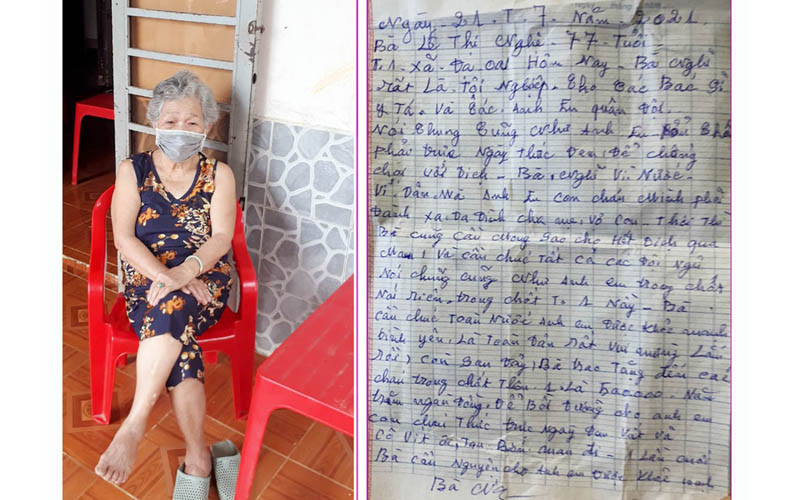 Ngày. 21. T. 7. Năm. 2021.
Bà Lê Thị Nghê - 77 - Tuổi -
T.1 Xã. Đạ Oai Hôm Nay - Bà Nghĩ
Rất Là. Tội Nghiệp. Cho Các Bác Sĩ
Y Tá. Và Các. Anh Em quân Đội.
Nói Chung Cũng Như Anh Em
phải Thức Ngày Thức Đêm. Để chống
chọi Với Dịch - Bà. Nghĩ Vì Nước -
Vì Dân. Mà Anh Em con cháu Mình phải
Đành Xa. Da Đình cha mẹ. Vợ Con
Bà cũng Cầu Mong Sao cho Hết Dịch qua
Mau. Và cầu chúc Tất cả các Đội Ngũ
Nói chung cũng Như Anh em trong chốt
Nói riêng. trong chốt T. 1 Này - Bà
cầu chúc Toàn Nước Anh em Được Khỏe mạnh
bình yên. Là Toàn Dân Rất Vui mừng Lắm
Rồi, Còn Sau Đây, Bà Trao Tặng đến các
cháu trong chốt Thôn. 1. Là 500000. Năm
trăm ngàn đồng. Để Bồi Dưỡng cho anh em
con cháu Thức
Cô Vit
Bà cầu Nguyện cho Anh em Được Khỏe mạnh
Bà